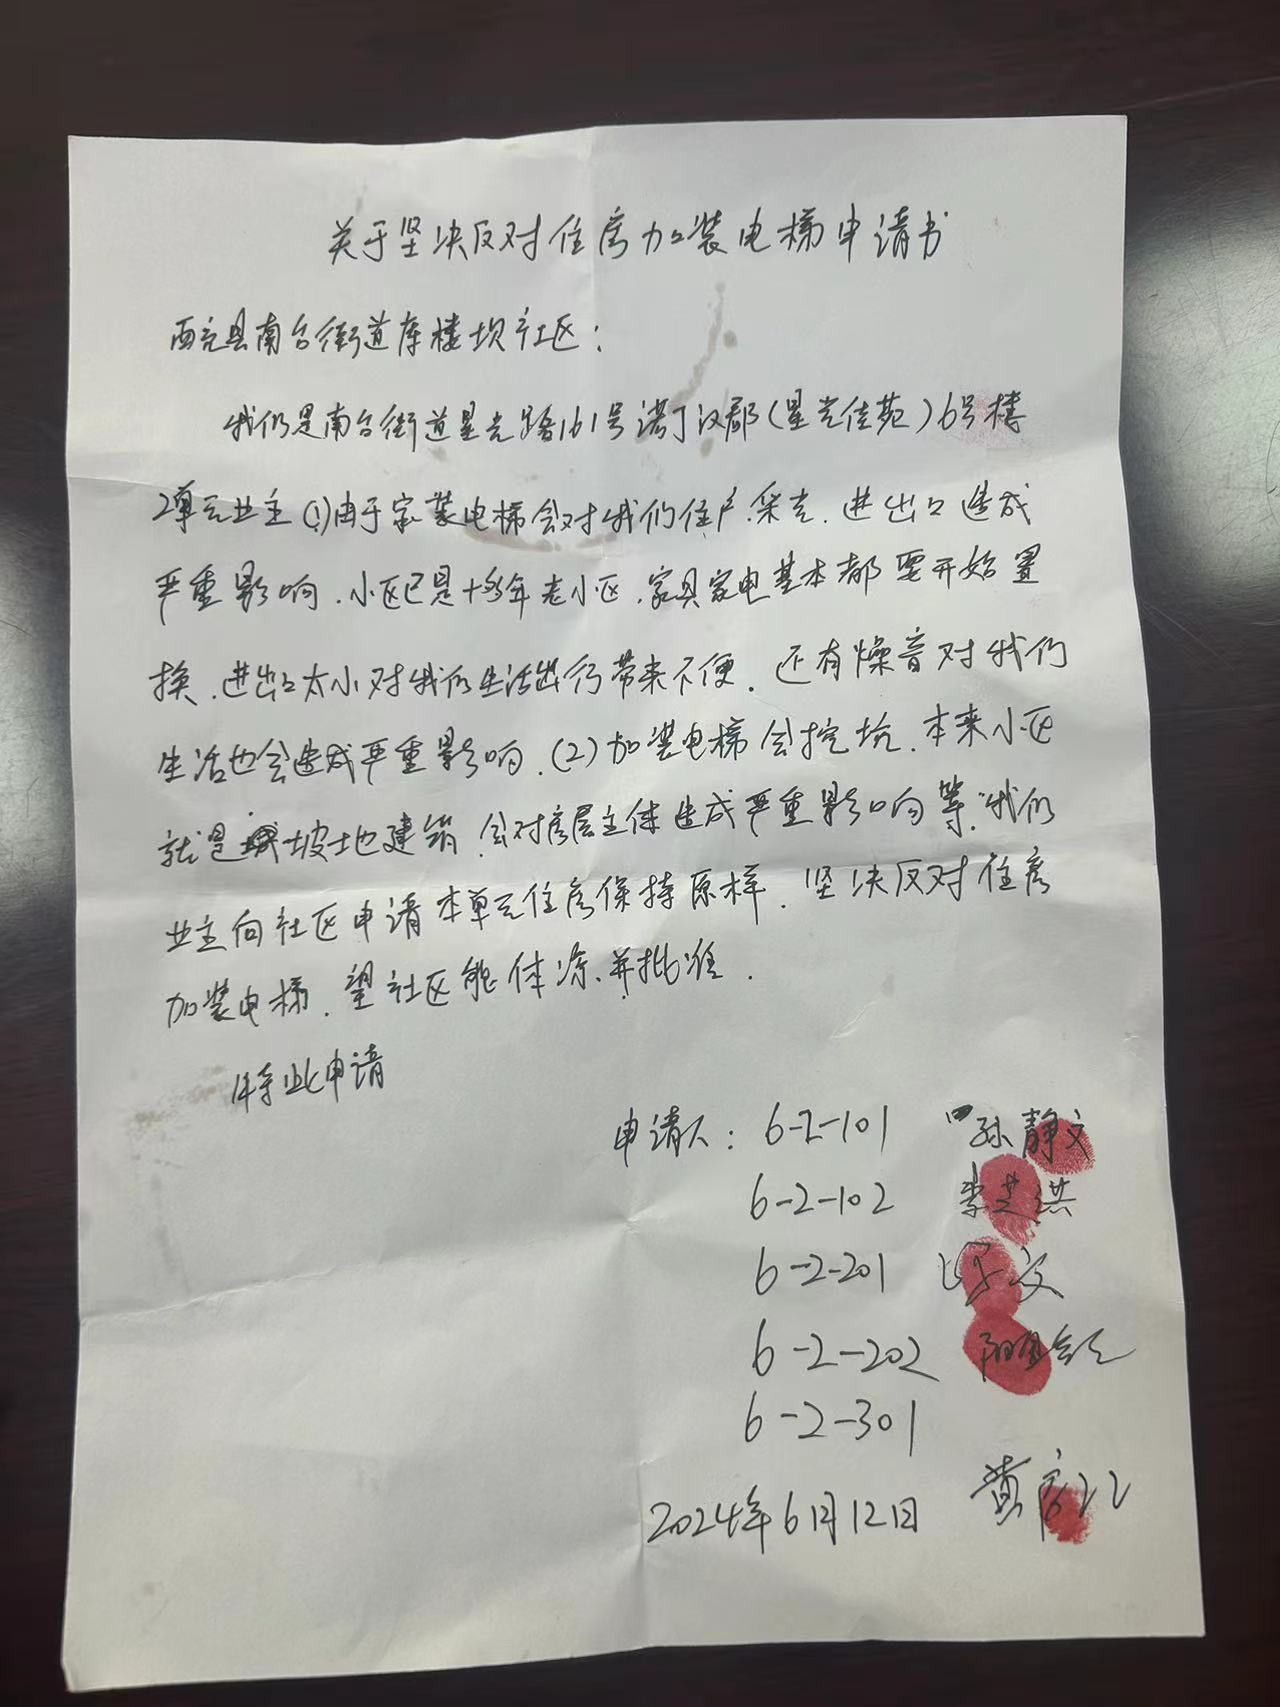 关于坚决反对住房加装电梯申请书
西充县南台街道库楼坝社区：
我们是南台街道星光路161号诺丁汉郡(星光佳苑)6号楼
2单元业主(1)由于家装电梯会对我们住户采光.进出口造成
严重影响.小区已是十多年老小区.家具家电基本都要开始置
换.进出口太小对我们生活出行带来不便.还有燥音对我们
生活也会造成严重影响.(2)加装电梯会挖坑.本来小区
就是坡地建筑.会对房屋主体造成严重影响等.我们
业主向社区申请本单元住房保持原样.坚决反对住房
加装电梯.望社区能体凉.并批准.
特此申请
申请人：6-2-101 孙静文
6-2-102 李芝洪
6-2-201 文
6-2-202
6-2-301
2024年6月12日 黄